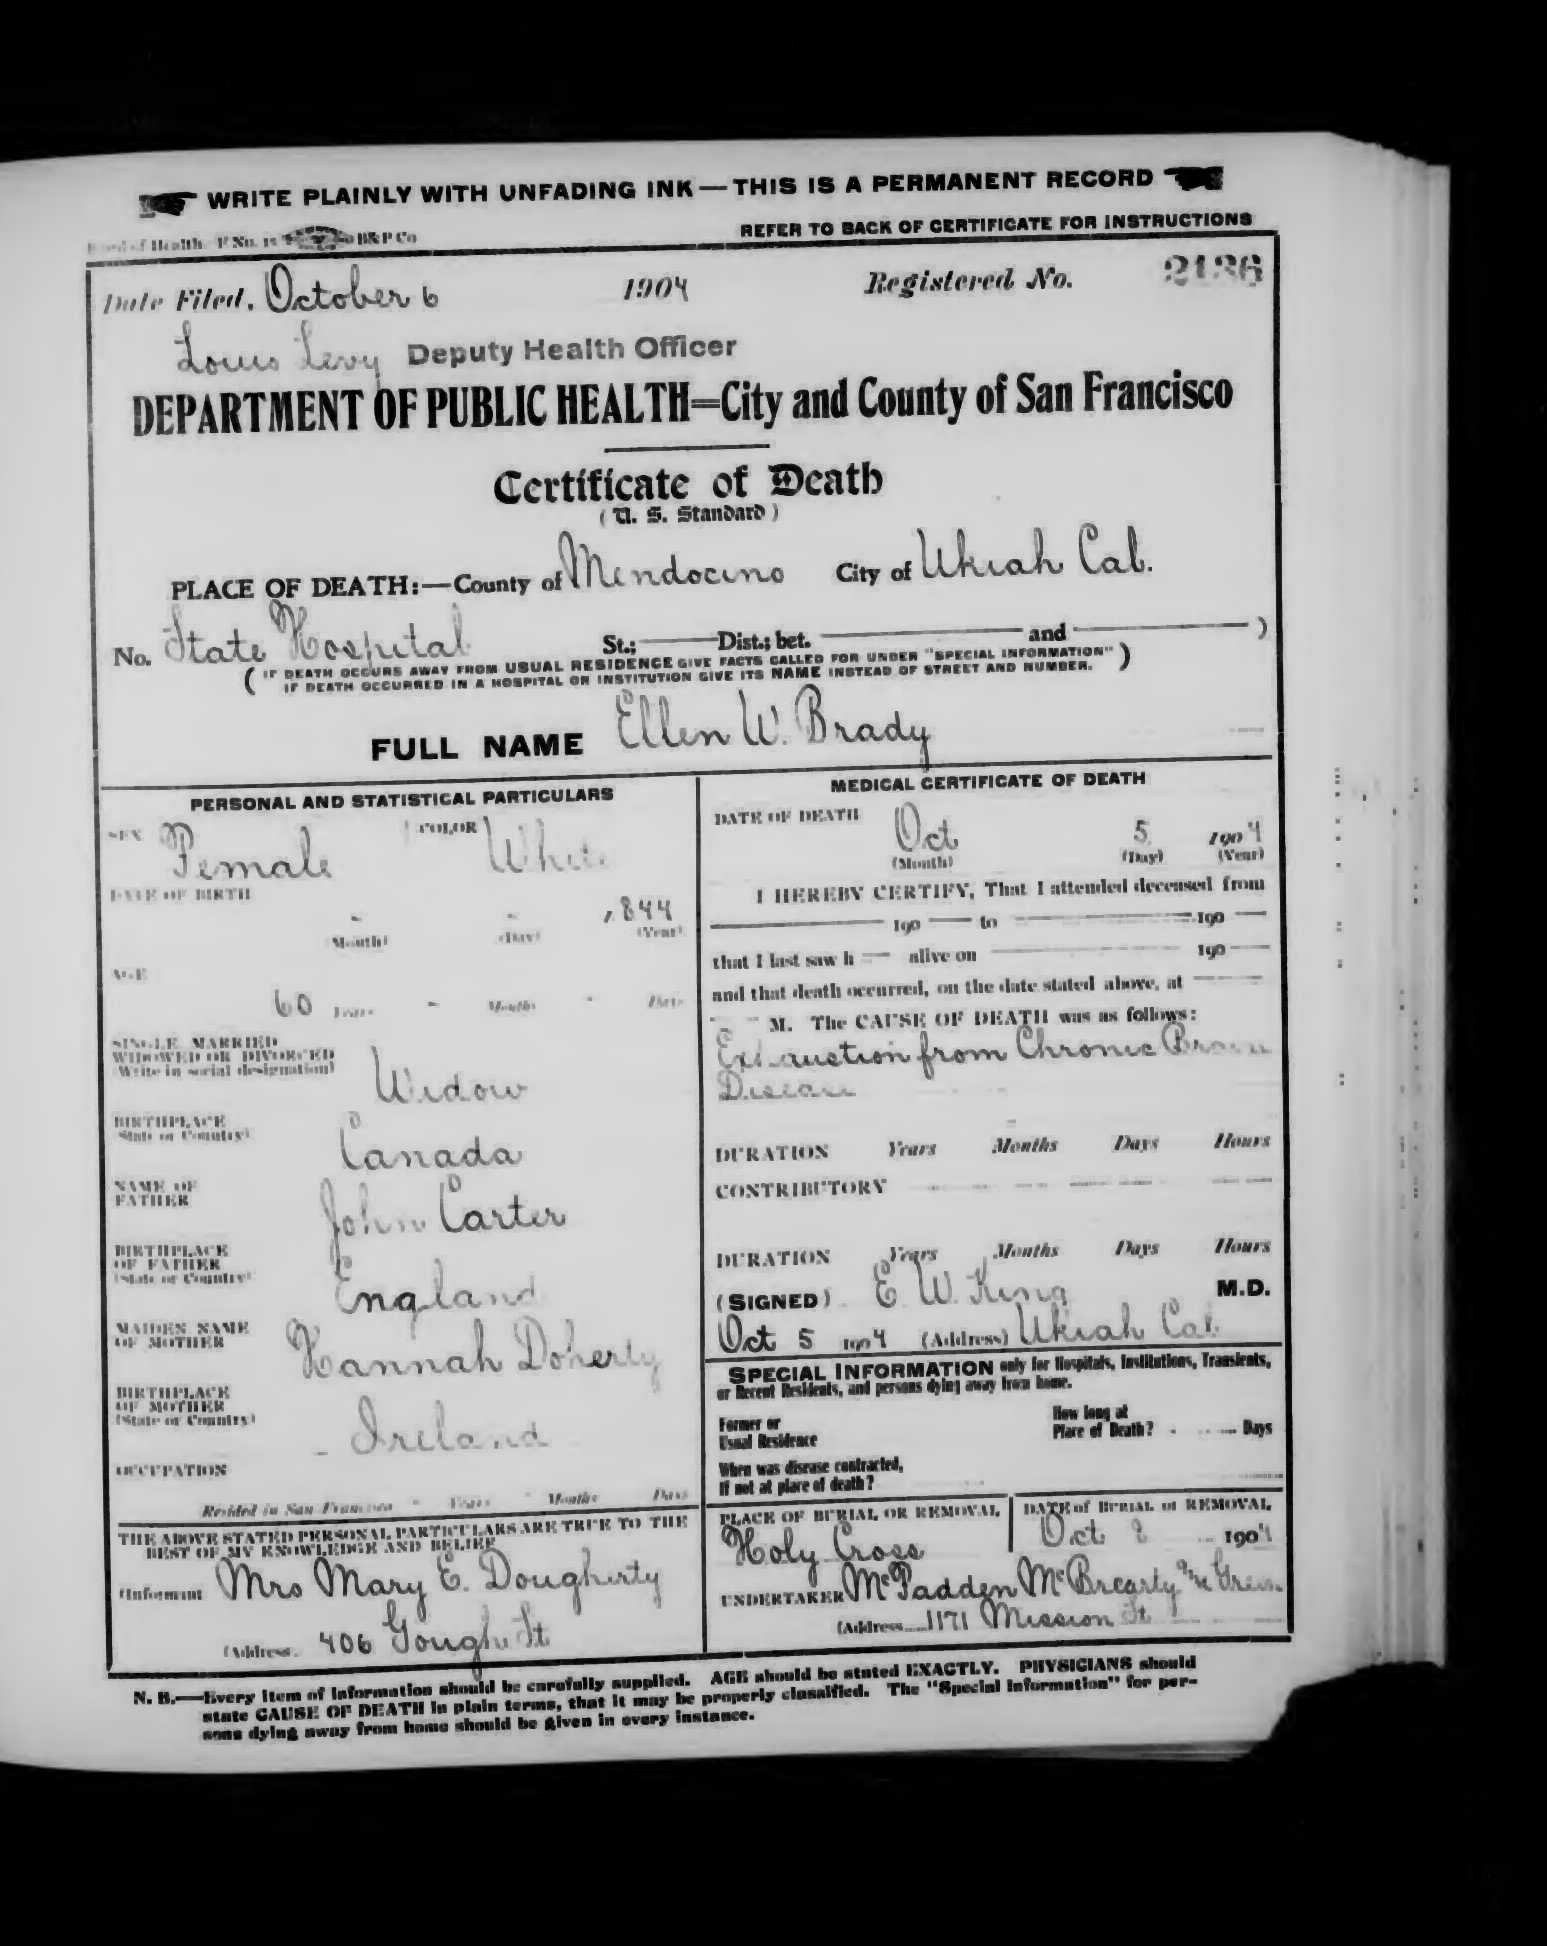 WRITE PLAINLY WITH UNFADING INK — THIS IS A PERMANENT RECORD
REFER TO BACK OF CERTIFICATE FOR INSTRUCTIONS
Board of Health B&P Co
Date Filed, October 6 1904 Registered No. 2136
Louis Levy Deputy Health Officer
DEPARTMENT OF PUBLIC HEALTH=City and County of San Francisco
Certificate of Death
( U. S. Standard )
PLACE OF DEATH:—County of Mendocino City of Ukiah Cal.
No. State Hospital St.; ——— Dist.; bet. ——— and ——— )
( IF DEATH OCCURS AWAY FROM USUAL RESIDENCE GIVE FACTS CALLED FOR UNDER "SPECIAL INFORMATION" )
IF DEATH OCCURRED IN A HOSPITAL OR INSTITUTION GIVE ITS NAME INSTEAD OF STREET AND NUMBER.
FULL NAME Ellen W. Brady
PERSONAL AND STATISTICAL PARTICULARS
SEX Female COLOR White
DATE OF BIRTH
- - 1844
(Month) (Day) (Year)
AGE
60 Years - Months - Days
SINGLE, MARRIED
WIDOWED OR DIVORCED
(Write in social designation) Widow
BIRTHPLACE
(State or Country) Canada
NAME OF
FATHER John Carter
BIRTHPLACE
OF FATHER
(State or Country) England
MAIDEN NAME
OF MOTHER Hannah Doherty
BIRTHPLACE
OF MOTHER
(State or Country) Ireland
OCCUPATION
Resided in San Francisco - Years - Months Days
THE ABOVE STATED PERSONAL PARTICULARS ARE TRUE TO THE
BEST OF MY KNOWLEDGE AND BELIEF
(Informant Mrs Mary E. Dougherty
(Address. 406 Gough St
MEDICAL CERTIFICATE OF DEATH
DATE OF DEATH
Oct 5 1904
(Month) (Day) (Year)
I HEREBY CERTIFY, That I attended deceased from
——— 190 —— to ——— 190 ——
that I last saw h — alive on ——— 190 ——
and that death occurred, on the date stated above, at ——
— M. The CAUSE OF DEATH was as follows:
Exhaustion from Chronic Brain
Disease
DURATION Years Months Days Hours
CONTRIBUTORY
DURATION Years Months Days Hours
(SIGNED) E. W. King M.D.
Oct 5 1904 (Address) Ukiah Cal.
SPECIAL INFORMATION only for Hospitals, Institutions, Transients,
or Recent Residents, and persons dying away from home.
Former or
Usual Residence
How long at
Place of Death? Days
When was disease contracted,
If not at place of death?
PLACE OF BURIAL OR REMOVAL
Holy Cross
DATE of BURIAL or REMOVAL
Oct 8 1904
UNDERTAKER McPadden McBrearty
(Address 1171 Mission St
N. B.—Every item of information should be carefully supplied. AGE should be stated EXACTLY. PHYSICIANS should
state CAUSE OF DEATH in plain terms, that it may be properly classified. The "Special Information" for per-
sons dying away from home should be given in every instance.